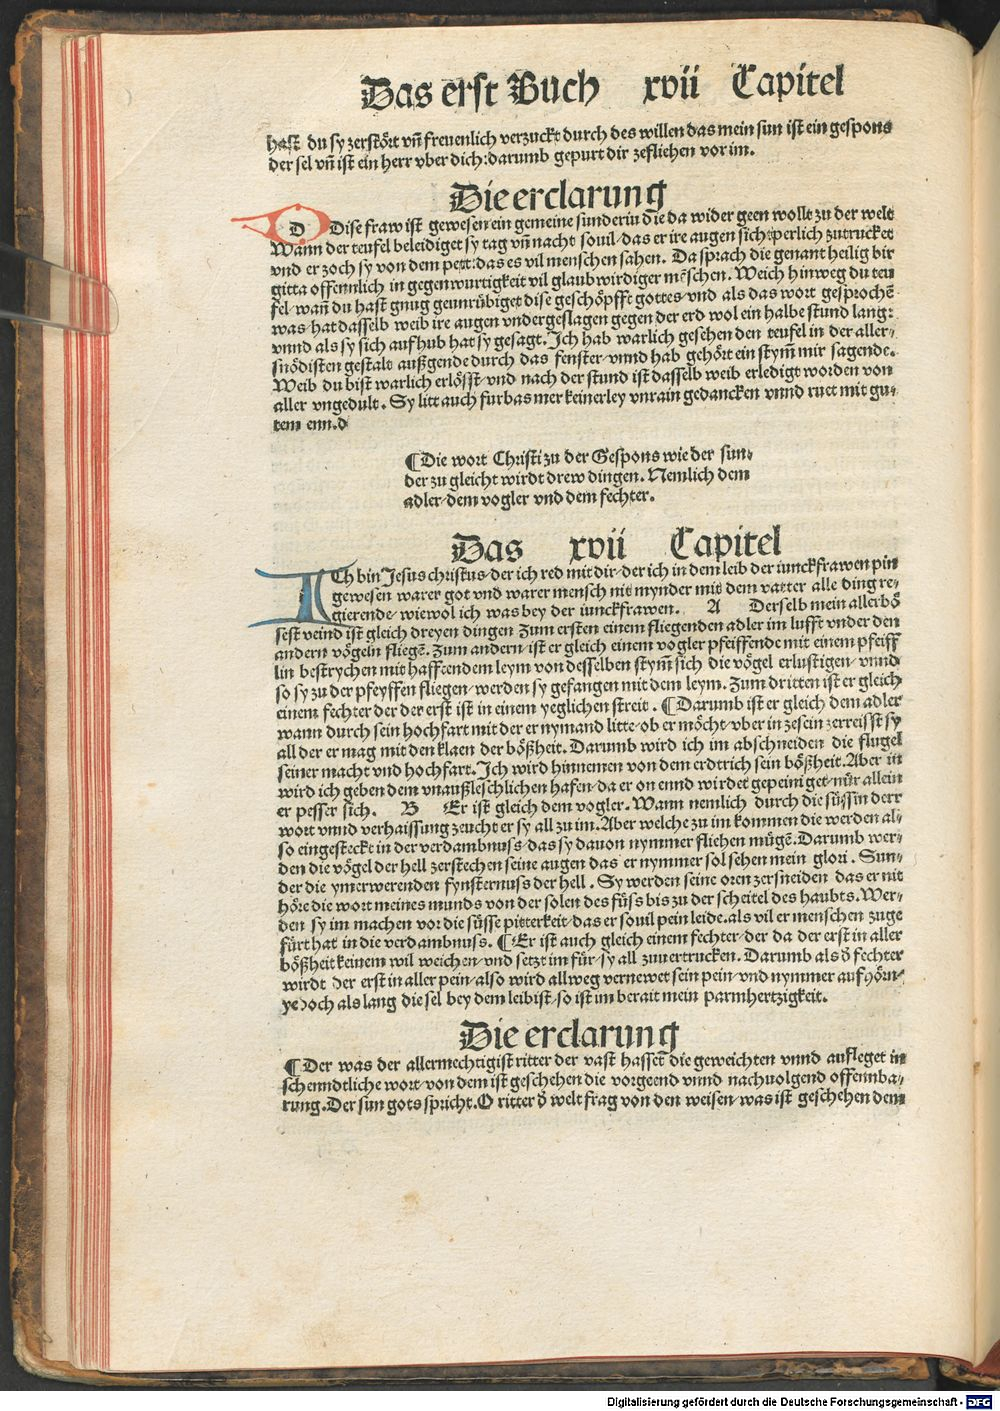 Das erst Buch xvii Capitel
hast du sy zerstört vñ freuenlich verzuckt durch des willen das mein sun ist ein gespons
der sel vñ ist ein herr vber dich: darumb gepurt dir zefliehen vor im.
Die erclarung
Dise fraw ist gewesen ein gemeine sunderin die da wider geen wollt zu der welt
Wann der teufel beleidiget sy tag vñ nacht souil/das er ire augen sichtperlich zutrucket
vnd er zoch sy von dem pett: das es vil menschen sahen. Da sprach die genant heilig bir
gitta offennlich in gegenwurtigkeit vil glaubwirdiger mēschen. Weich hinweg du teu
fel/wañ du hast gnug geunrübiget dise geschöpfft gottes/vnd als das wort gesprochē
was/hat dasselb weib ire augen vndergeslagen gegen der erd wol ein halbe stund lang:
vnnd als sy sich aufhub hat sy gesagt. Ich hab warlich gesehen den teufel in der aller/
snödisten gestalt außgende durch das fenster/vnnd hab gehört ein stym̄ mir sagende.
Weib du bist warlich erlösst/vnd nach der stund ist dasselb weib erledigt worden von
aller vngedult. Sy litt auch furbas mer keinerley vnrain gedancken vnnd ruet mit gu/
tem enn.d
¶Die wort Christi zu der Gespons wie der sun/
der zu gleicht wirdt drew dingen. Nemlich dem
adler/dem vogler vnd dem fechter.
Das xvii Capitel
ICh bin Jesus christus/der ich red mit dir/der ich in dem leib der iunckfrawen pin
gewesen warer got vnd warer mensch nit mynder mit dem vatter alle ding re/
gierende/wiewol ich was bey der iunckfrawen. A Derselb mein allerbö
sest veind ist gleich dreyen dingen Zum ersten einem fliegenden adler im lufft vnder den
andern vögeln fliegē. Zum andern/ist er gleich einem vogler pfeiffende mit einem pfeiff
lin bestrychen mit hafftendem leym von desselben stym̄ sich die vögel erlustigen/vnnd
so sy zu der pfeyffen fliegen/werden sy gefangen mit dem leym. Zum dritten ist er gleich
einem fechter der der erst ist in einem yeglichen streit. ¶Darumb ist er gleich dem adler
wann durch sein hochfart mit der er nymand litte/ob er möcht/vber in zesein zerreisst sy
all der er mag mit den klaen der bößheit. Darumb wird ich im abschneiden die flugel
seiner macht vnd hochfart. Ich wird hinnemen von dem erdtrich sein bößheit. Aber in
wird ich geben dem vnaußleschlichen hafen/da er on ennd wirdet gepeiniget/nür allein
er pesser sich. B Er ist gleich dem vogler. Wann nemlich durch die süssin der
wort vnnd verhaissung zeucht er sy all zu im. Aber welche zu im kommen die werden al/
so eingesteckt in der verdambnuss/das sy dauon nymmer fliehen mügē. Darumb wer/
den die vögel der hell zerstechen seine augen das er nymmer sol sehen mein glori. Sun/
der die ymerwerenden fynsternuss der hell. Sy werden seine oren zersneiden das er nit
höre die wort meines munds von der solen des füß bis zu der scheitel des haubts. Wer/
den sy im machen vor die süsse pitterkeit/das er souil pein leide.als vil er menschen zuge
fürt hat in die verdambnuss. ¶Er ist auch gleich einem fechter/der da der erst in aller
bößheit keinem wil weichen/vnd setzt im für/sy all zuuertrucken. Darumb als d̄ fechter
wirdt der erst in aller pein/also wird allweg vernewet sein pein/vnd nymmer aufhörn/
yedoch als lang die sel bey dem leib ist/so ist im berait mein parmhertzigkeit.
Die erclarung
¶Der was der allermechtigist ritter der vast hasset die geweichten vnnd aufleget in
schenndtliche wort/von dem ist geschehen die vorgeend vnnd nachuolgend offennba/
rung. Der sun gots spricht. O ritter d̄ welt frag von den weisen/was ist geschehen dem
Digitalisierung gefördert durch die Deutsche Forschungsgemeinschaft - DFG